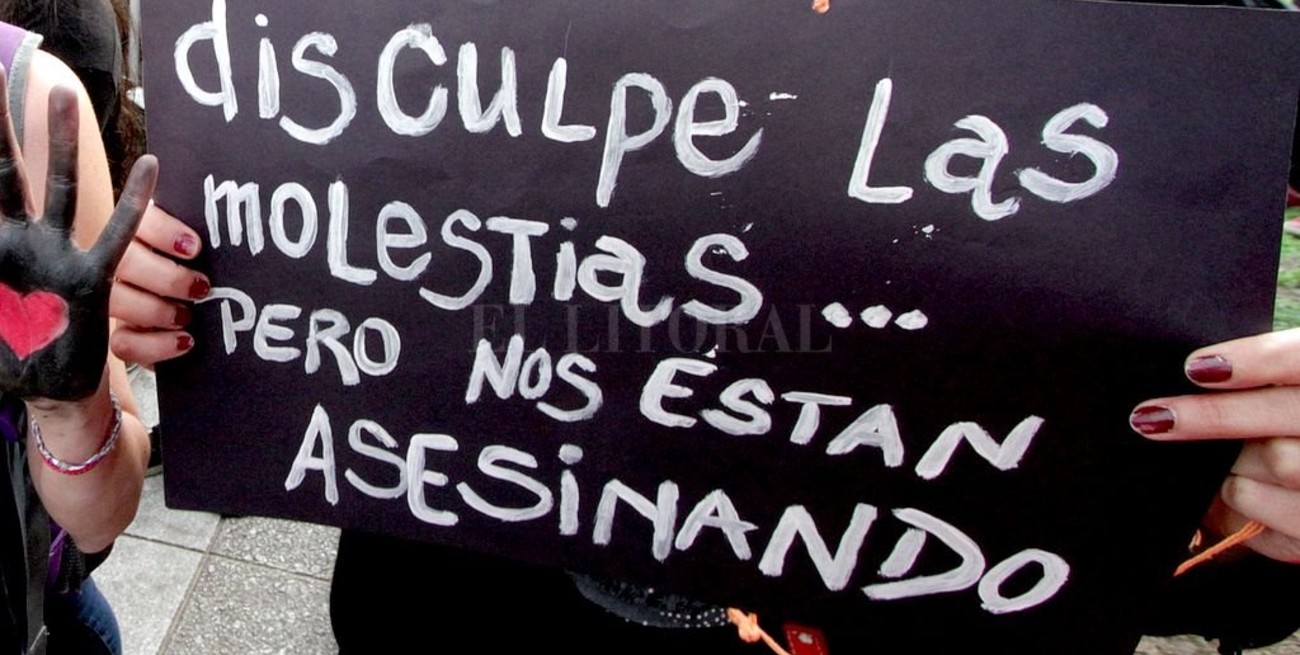 disculpe las
molestias...
PERO NOS ESTAN
ASESINANDO
EL LITORAL